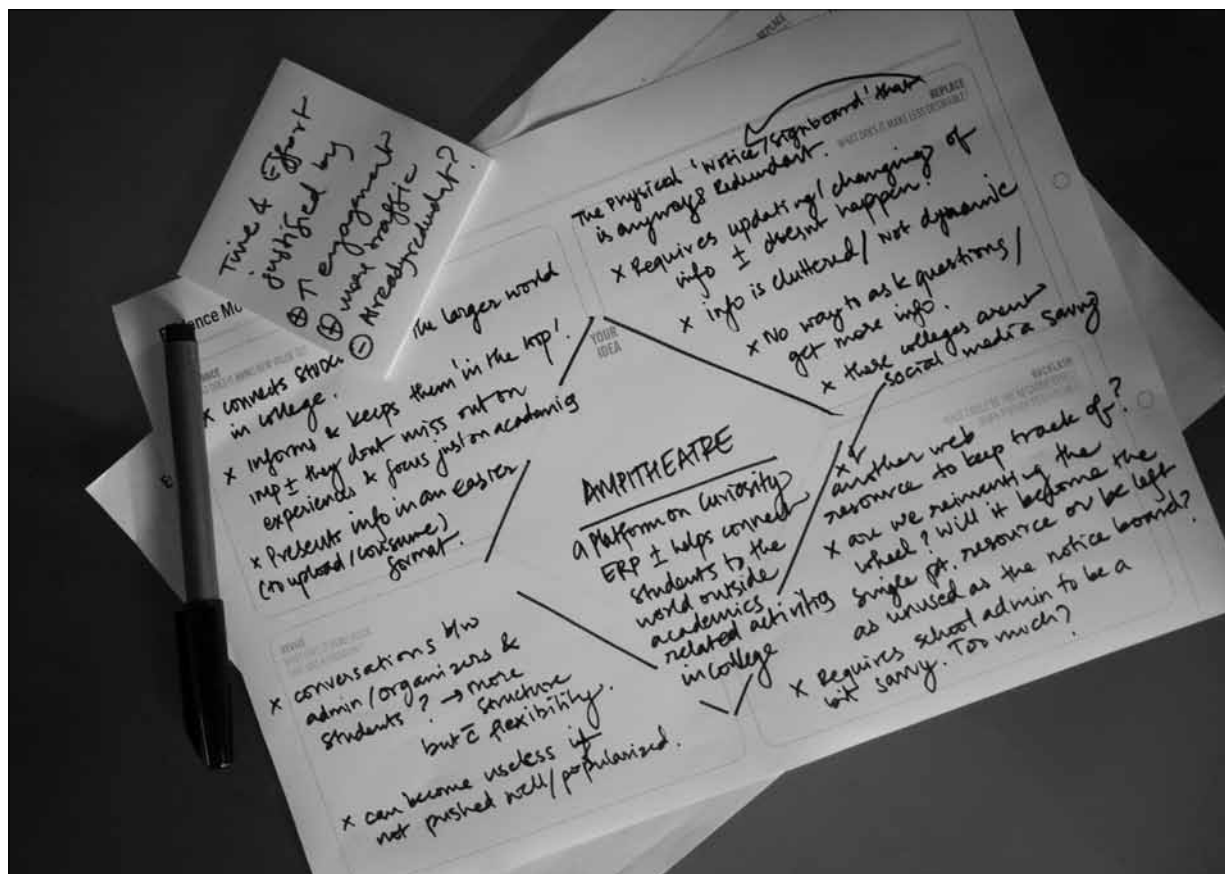 Time & Effort
justified by
⊕ ↑ engagement
⊕ max traffic
⊖ Already redundant?
REPLACE
WHAT DOES IT MAKE LESS DESIRABLE?
The Physical 'Notice/signboard' that
is anyways Redundant.
x Requires updating/changing of
info ± doesnt happen!
x info is cluttered/ Not dynamic
x No way to ask questions/
get more info.
x these colleges arent
social media savvy
The larger world
x connects
in college.
x informs & keeps them 'in the loop'
imp ± they dont miss out on
experiences & focus just on academics
x Presents info in an easier
(to upload/consume)
format.
YOUR
IDEA
AMPITHEATRE
a platform on curiosity
ERP ± helps connect
students to the
world outside
academics
related activities
in college
BACKLASH
x
another web
resource to keep track of?
x are we reinventing the
wheel? will it become the
single pt. resource or be left
as unused as the notice board?
x Requires school admin to be a
bit savvy. Too much?
x conversations b/w
admin/organizers &
students? → more
structure
but c̄ flexibility.
x can become useless if
not pushed well/popularized.